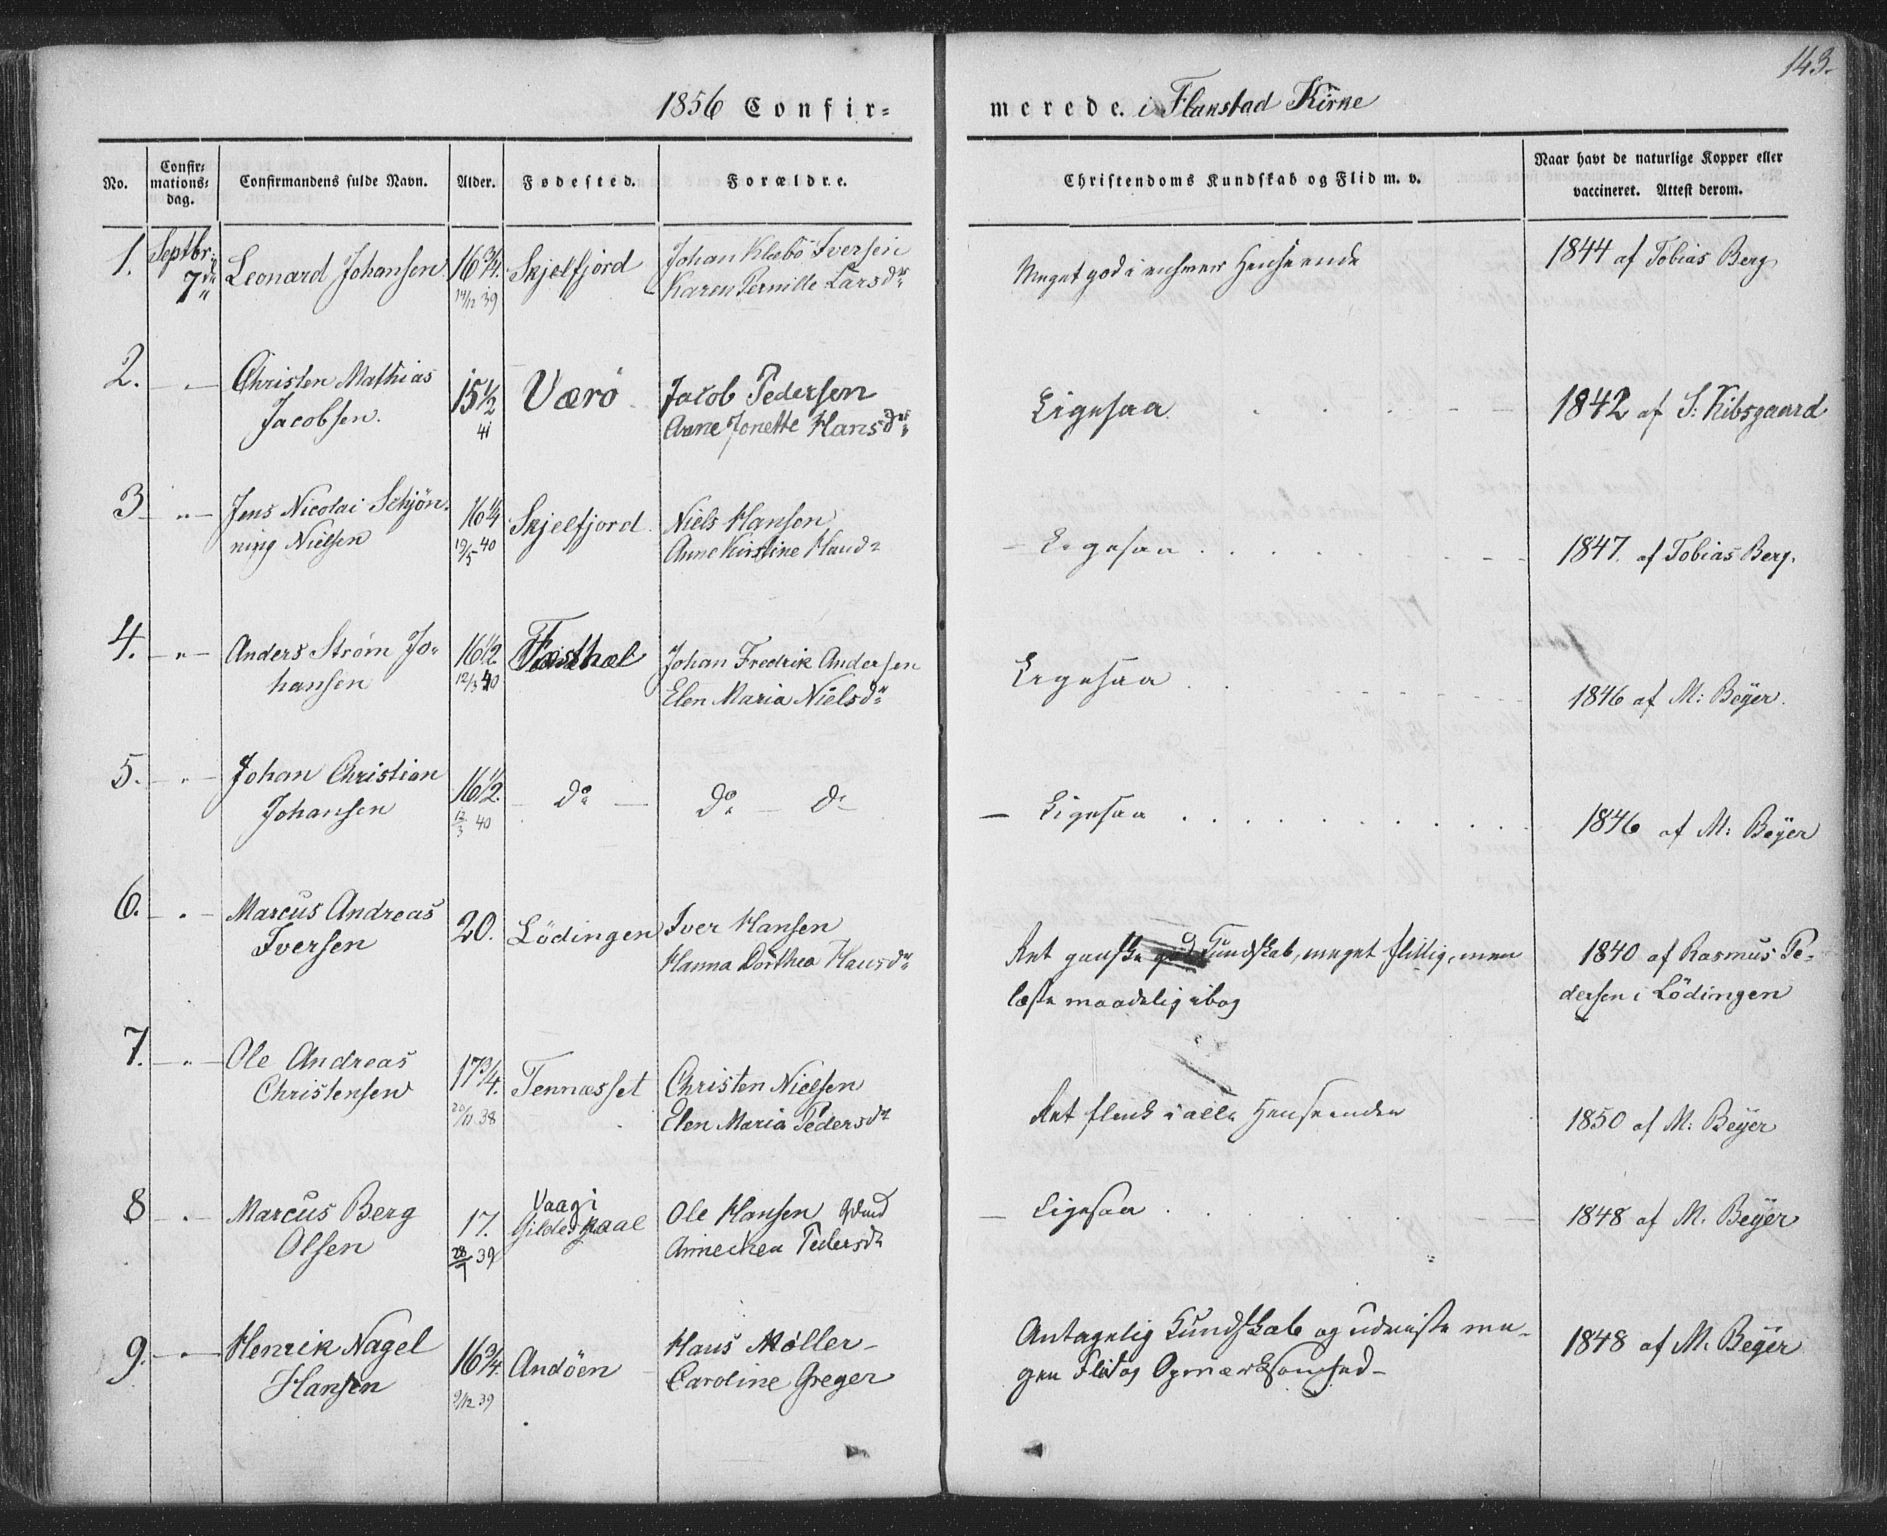 143.
1856 Confir= merede. i Flakstad Kirke
No. Confir= mations= dag. Confirmandens fulde Navn. Alder. Fødested. Forældre. Christendoms Kundskab og Flid m. v. Naar havt de naturlige Kopper eller vaccineret. Attest derom.
1. Septbr. 7de Leonard Johansen 16 3/4. Skjelfjord Johan Klæbo Iversen Meget god i enhver Henseende 1844 af Tobias Berg
14/12 39 Karen Pernille Larsdr
2. — " — Christen Mathias 15 1/2 Værö Jacob Pedersen Ligesaa 1842 af S: Kibsgaard
Jacobsen. 41 Anne Jonette Hansdr
3 — " — Jens Nicolai Schjön= 16 1/4 Skjelfjord Niels Hansen — Ligesaa 1847. af Tobias Berg.
ning Nielsen 19/5 40 Anne Kirstine Hansdr
4. — " — Anders Strøm Jo= 16 1/2 Johan Fredrik Andersen Ligesaa
hansen 12/3 40 Elen Maria Nielsdr 1846 af M: Beyer.
5. — " — Johan Christian 16 1/2. — do — do — do
Johansen 12/3 40 — Ligesaa 1846 af M: Beyer
6. — " — Marcus Andreas 20. Lödingen Iver Hansen
Iversen Hanna Dorthea Hansdr Ret ganske god Kundskab, meget flittig, men 1840 af Rasmus Pe=
læste maadelig i bog dersen i Lödingen
7. — " — Ole Andreas 17 3/4. Tennæsset Christen Nielsen
Christensen 20/11 38 Elen Maria Pedersdr Ret flink i alle Henseender 1850 af M: Beyer
8 — " — Marcus Berg 17. Vaag i Gildeskaal Ole Hansen — Ligesaa 1848 af M. Beyer
Olsen 28/7 39 Annechen Pedersdr
9. — " — Henrik Nagel 16 3/4. Andöen Hans Møller — Antagelig Kundskab og udviste me= 1848 af M. Beyer
Hansen 9/12 39 Caroline Greger gen Flid og Opmærksomhed —